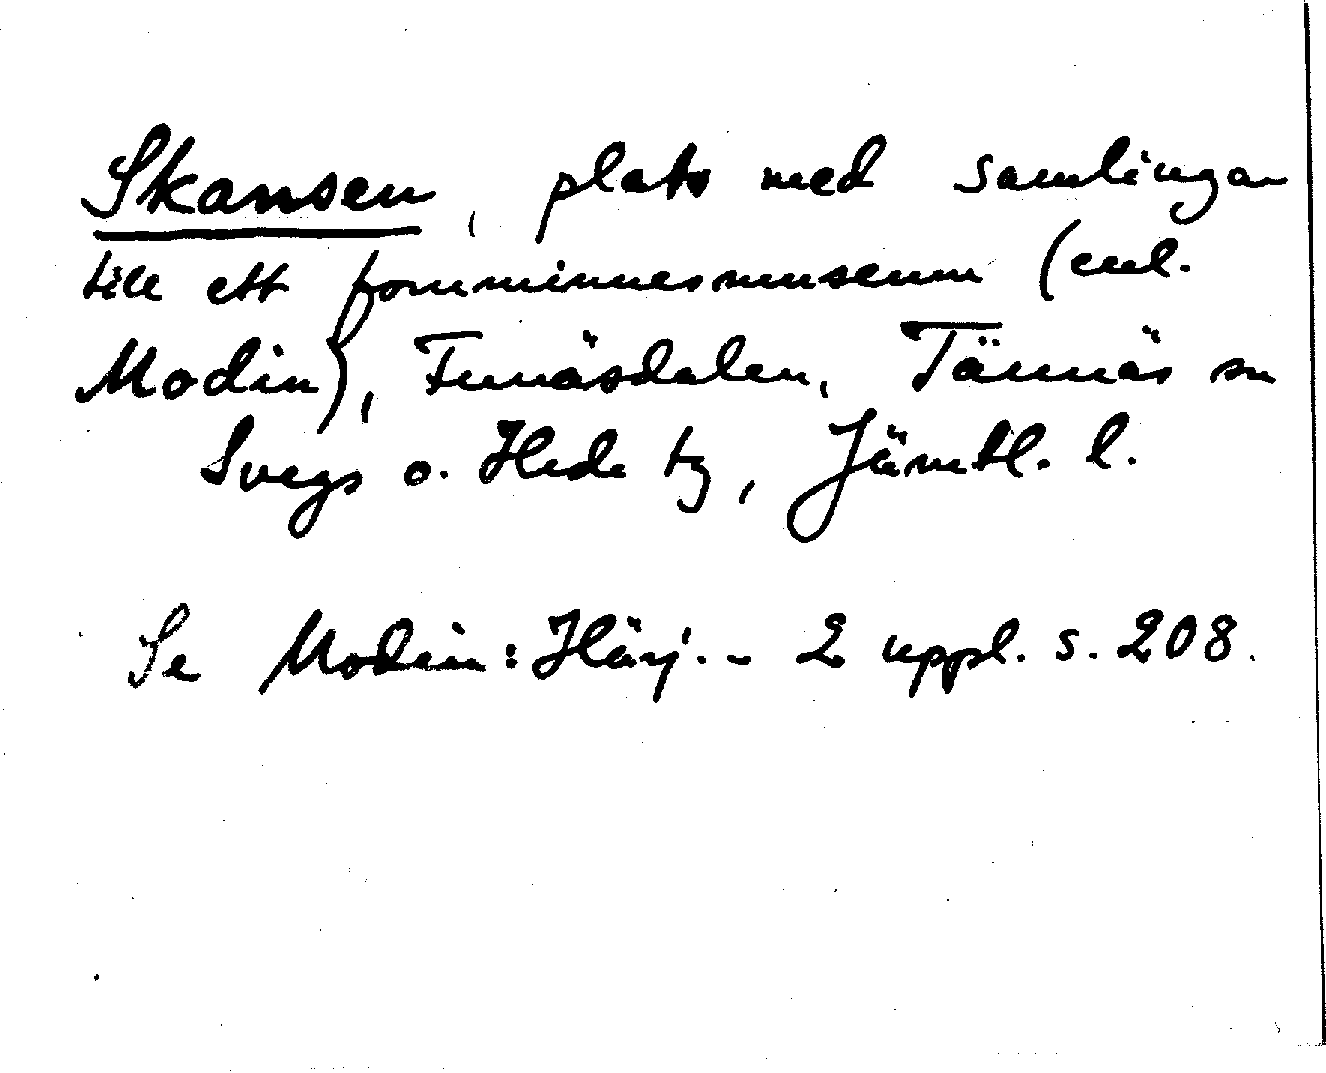 Skansen, plats med samlingar
till ett fornminnesmuseum (enl.
Modin), Funäsdalen, Tännäs sn
Svegs o. Hede tg, Jämtl. l.
Se Modin: Härj. - 2 uppl. s. 208.